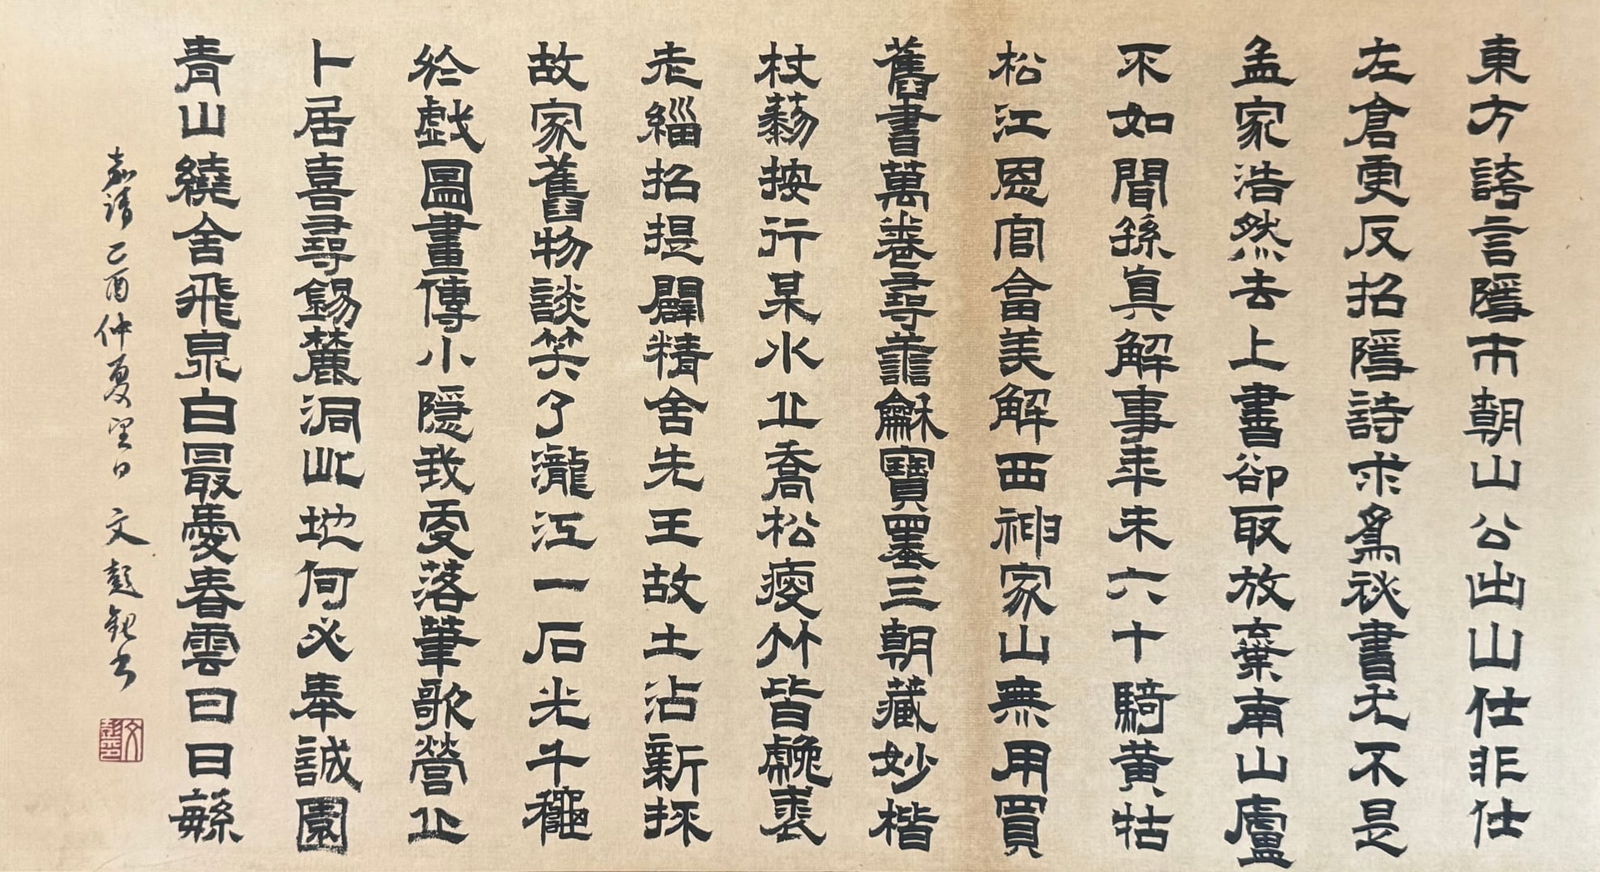 東方誇言隱市朝山公出山仕非仕
左倉更反招隱詩求為祕書尤不是
孟家浩然去上書卻取放棄南山廬
不如閒孫真解事年未六十騎黃牯
松江恩官畣美解西神家山無用買
舊書萬卷尋龢寶墨三朝藏妙楷
杖藜按行某水丘喬松瘦竹皆裘
老緇招提闢精舍先王故土沾新採
故家舊物談笑了瀧江一石光千龝
於戲圖畫傳小隱我更落筆歌營丘
卜居喜尋錫麓洞此地何必奉誠園
青山繞舍飛泉白最愛春雲日日繇
嘉靖乙酉仲夏望日 文彭書